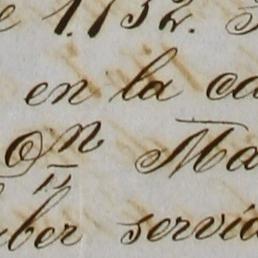 e 1.732. 
en la ca
on Ma
ber servia